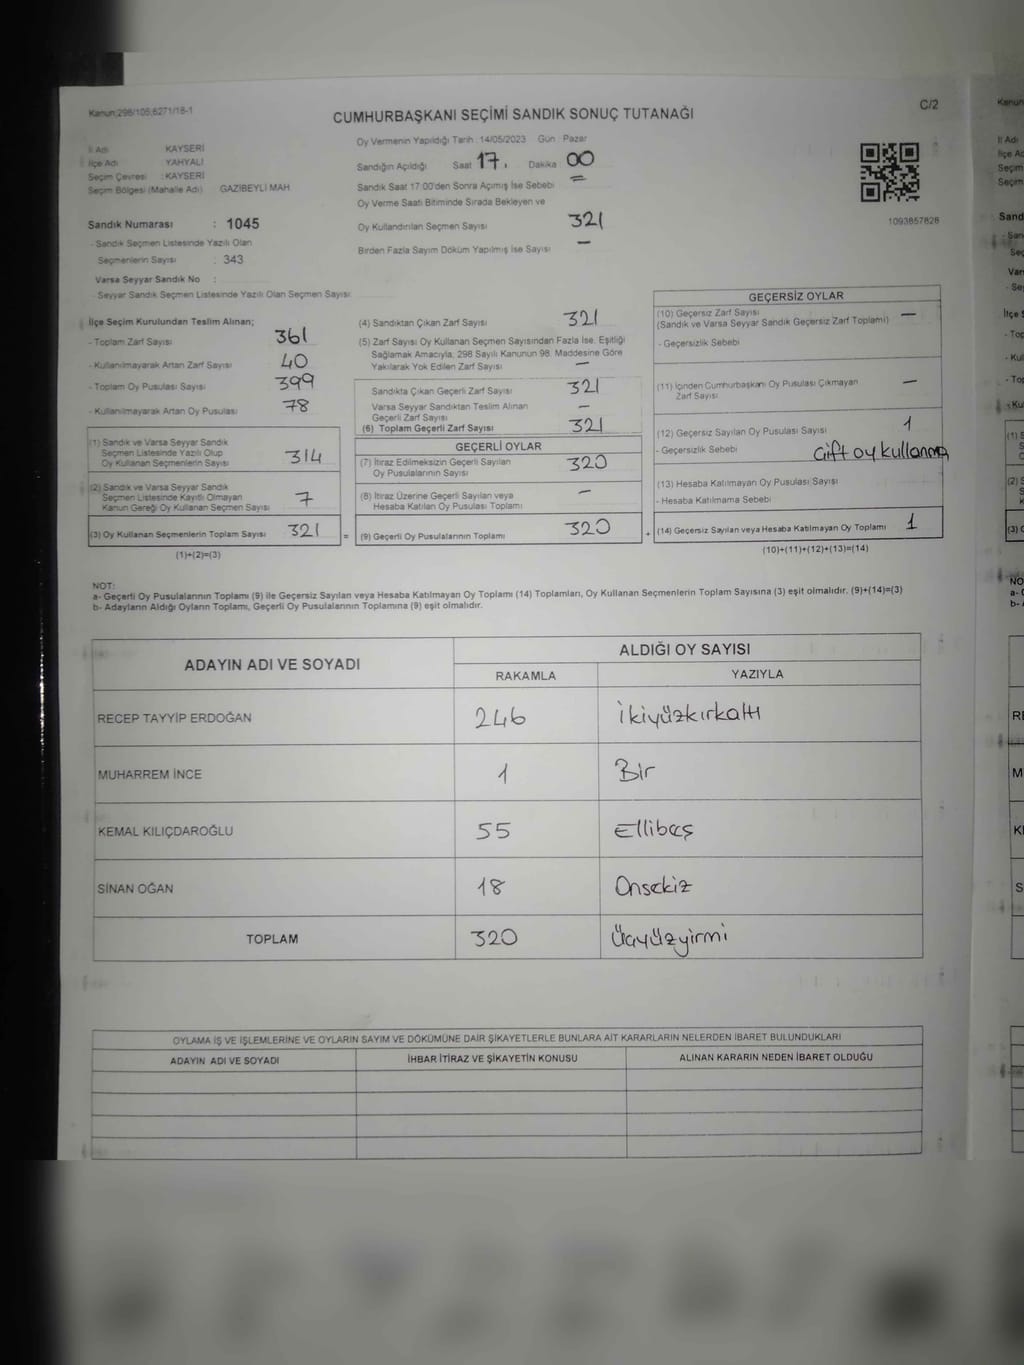 Kanun:298/105;6271/18-1
C/2
CUMHURBAŞKANI SEÇİMİ SANDIK SONUÇ TUTANAĞI
İl Adı KAYSERİ
İlçe Adı YAHYALI
Seçim Çevresi :KAYSERİ
Seçim Bölgesi (Mahalle Adı) GAZİBEYLİ MAH.
Oy Vermenin Yapıldığı Tarih : 14/05/2023 Gün : Pazar
Sandığın Açıldığı Saat 17. Dakika 00
Sandık Saat 17:00'den Sonra Açılmış İse Sebebi =
Oy Verme Saati Bitiminde Sırada Bekleyen ve
Oy Kullandırılan Seçmen Sayısı 321
Birden Fazla Sayım Döküm Yapılmış İse Sayısı —
1093857828
Sandık Numarası : 1045
- Sandık Seçmen Listesinde Yazılı Olan
Seçmenlerin Sayısı : 343
Varsa Seyyar Sandık No :
- Seyyar Sandık Seçmen Listesinde Yazılı Olan Seçmen Sayısı:
İlçe Seçim Kurulundan Teslim Alınan;
- Toplam Zarf Sayısı 361
- Kullanılmayarak Artan Zarf Sayısı 40
- Toplam Oy Pusulası Sayısı 399
- Kullanılmayarak Artan Oy Pusulası 78
(1) Sandık ve Varsa Seyyar Sandık
Seçmen Listesinde Yazılı Olup
Oy Kullanan Seçmenlerin Sayısı 314
(2) Sandık ve Varsa Seyyar Sandık
Seçmen Listesinde Kayıtlı Olmayan
Kanun Gereği Oy Kullanan Seçmen Sayısı 7
(3) Oy Kullanan Seçmenlerin Toplam Sayısı 321 =
(1)+(2)=(3)
(4) Sandıktan Çıkan Zarf Sayısı 321
(5) Zarf Sayısı Oy Kullanan Seçmen Sayısından Fazla İse, Eşitliği
Sağlamak Amacıyla, 298 Sayılı Kanunun 98. Maddesine Göre
Yakılarak Yok Edilen Zarf Sayısı —
Sandıkta Çıkan Geçerli Zarf Sayısı 321
Varsa Seyyar Sandıktan Teslim Alınan
Geçerli Zarf Sayısı —
(6) Toplam Geçerli Zarf Sayısı 321
GEÇERLİ OYLAR
(7) İtiraz Edilmeksizin Geçerli Sayılan
Oy Pusulalarının Sayısı 320
(8) İtiraz Üzerine Geçerli Sayılan veya
Hesaba Katılan Oy Pusulası Toplamı —
(9) Geçerli Oy Pusulalarının Toplamı 320 +
GEÇERSİZ OYLAR
(10) Geçersiz Zarf Sayısı —
(Sandık ve Varsa Seyyar Sandık Geçersiz Zarf Toplamı)
- Geçersizlik Sebebi
(11) İçinden Cumhurbaşkanı Oy Pusulası Çıkmayan —
Zarf Sayısı
(12) Geçersiz Sayılan Oy Pusulası Sayısı 1
- Geçersizlik Sebebi Çift oy kullanma
(13) Hesaba Katılmayan Oy Pusulası Sayısı
- Hesaba Katılmama Sebebi
(14) Geçersiz Sayılan veya Hesaba Katılmayan Oy Toplamı 1
(10)+(11)+(12)+(13)=(14)
NOT:
a- Geçerli Oy Pusulalarının Toplamı (9) ile Geçersiz Sayılan veya Hesaba Katılmayan Oy Toplamı (14) Toplamları, Oy Kullanan Seçmenlerin Toplam Sayısına (3) eşit olmalıdır. (9)+(14)=(3)
b- Adayların Aldığı Oyların Toplamı, Geçerli Oy Pusulalarının Toplamına (9) eşit olmalıdır.
ADAYIN ADI VE SOYADI ALDIĞI OY SAYISI
RAKAMLA YAZIYLA
RECEP TAYYİP ERDOĞAN 246 İkiyüzkırkaltı
MUHARREM İNCE 1 Bir
KEMAL KILIÇDAROĞLU 55 Ellibeş
SİNAN OĞAN 18 Onsekiz
TOPLAM 320 Üçyüzyirmi
OYLAMA İŞ VE İŞLEMLERİNE VE OYLARIN SAYIM VE DÖKÜMÜNE DAİR ŞİKAYETLERLE BUNLARA AİT KARARLARIN NELERDEN İBARET BULUNDUKLARI
ADAYIN ADI VE SOYADI İHBAR İTİRAZ VE ŞİKAYETİN KONUSU ALINAN KARARIN NEDEN İBARET OLDUĞU